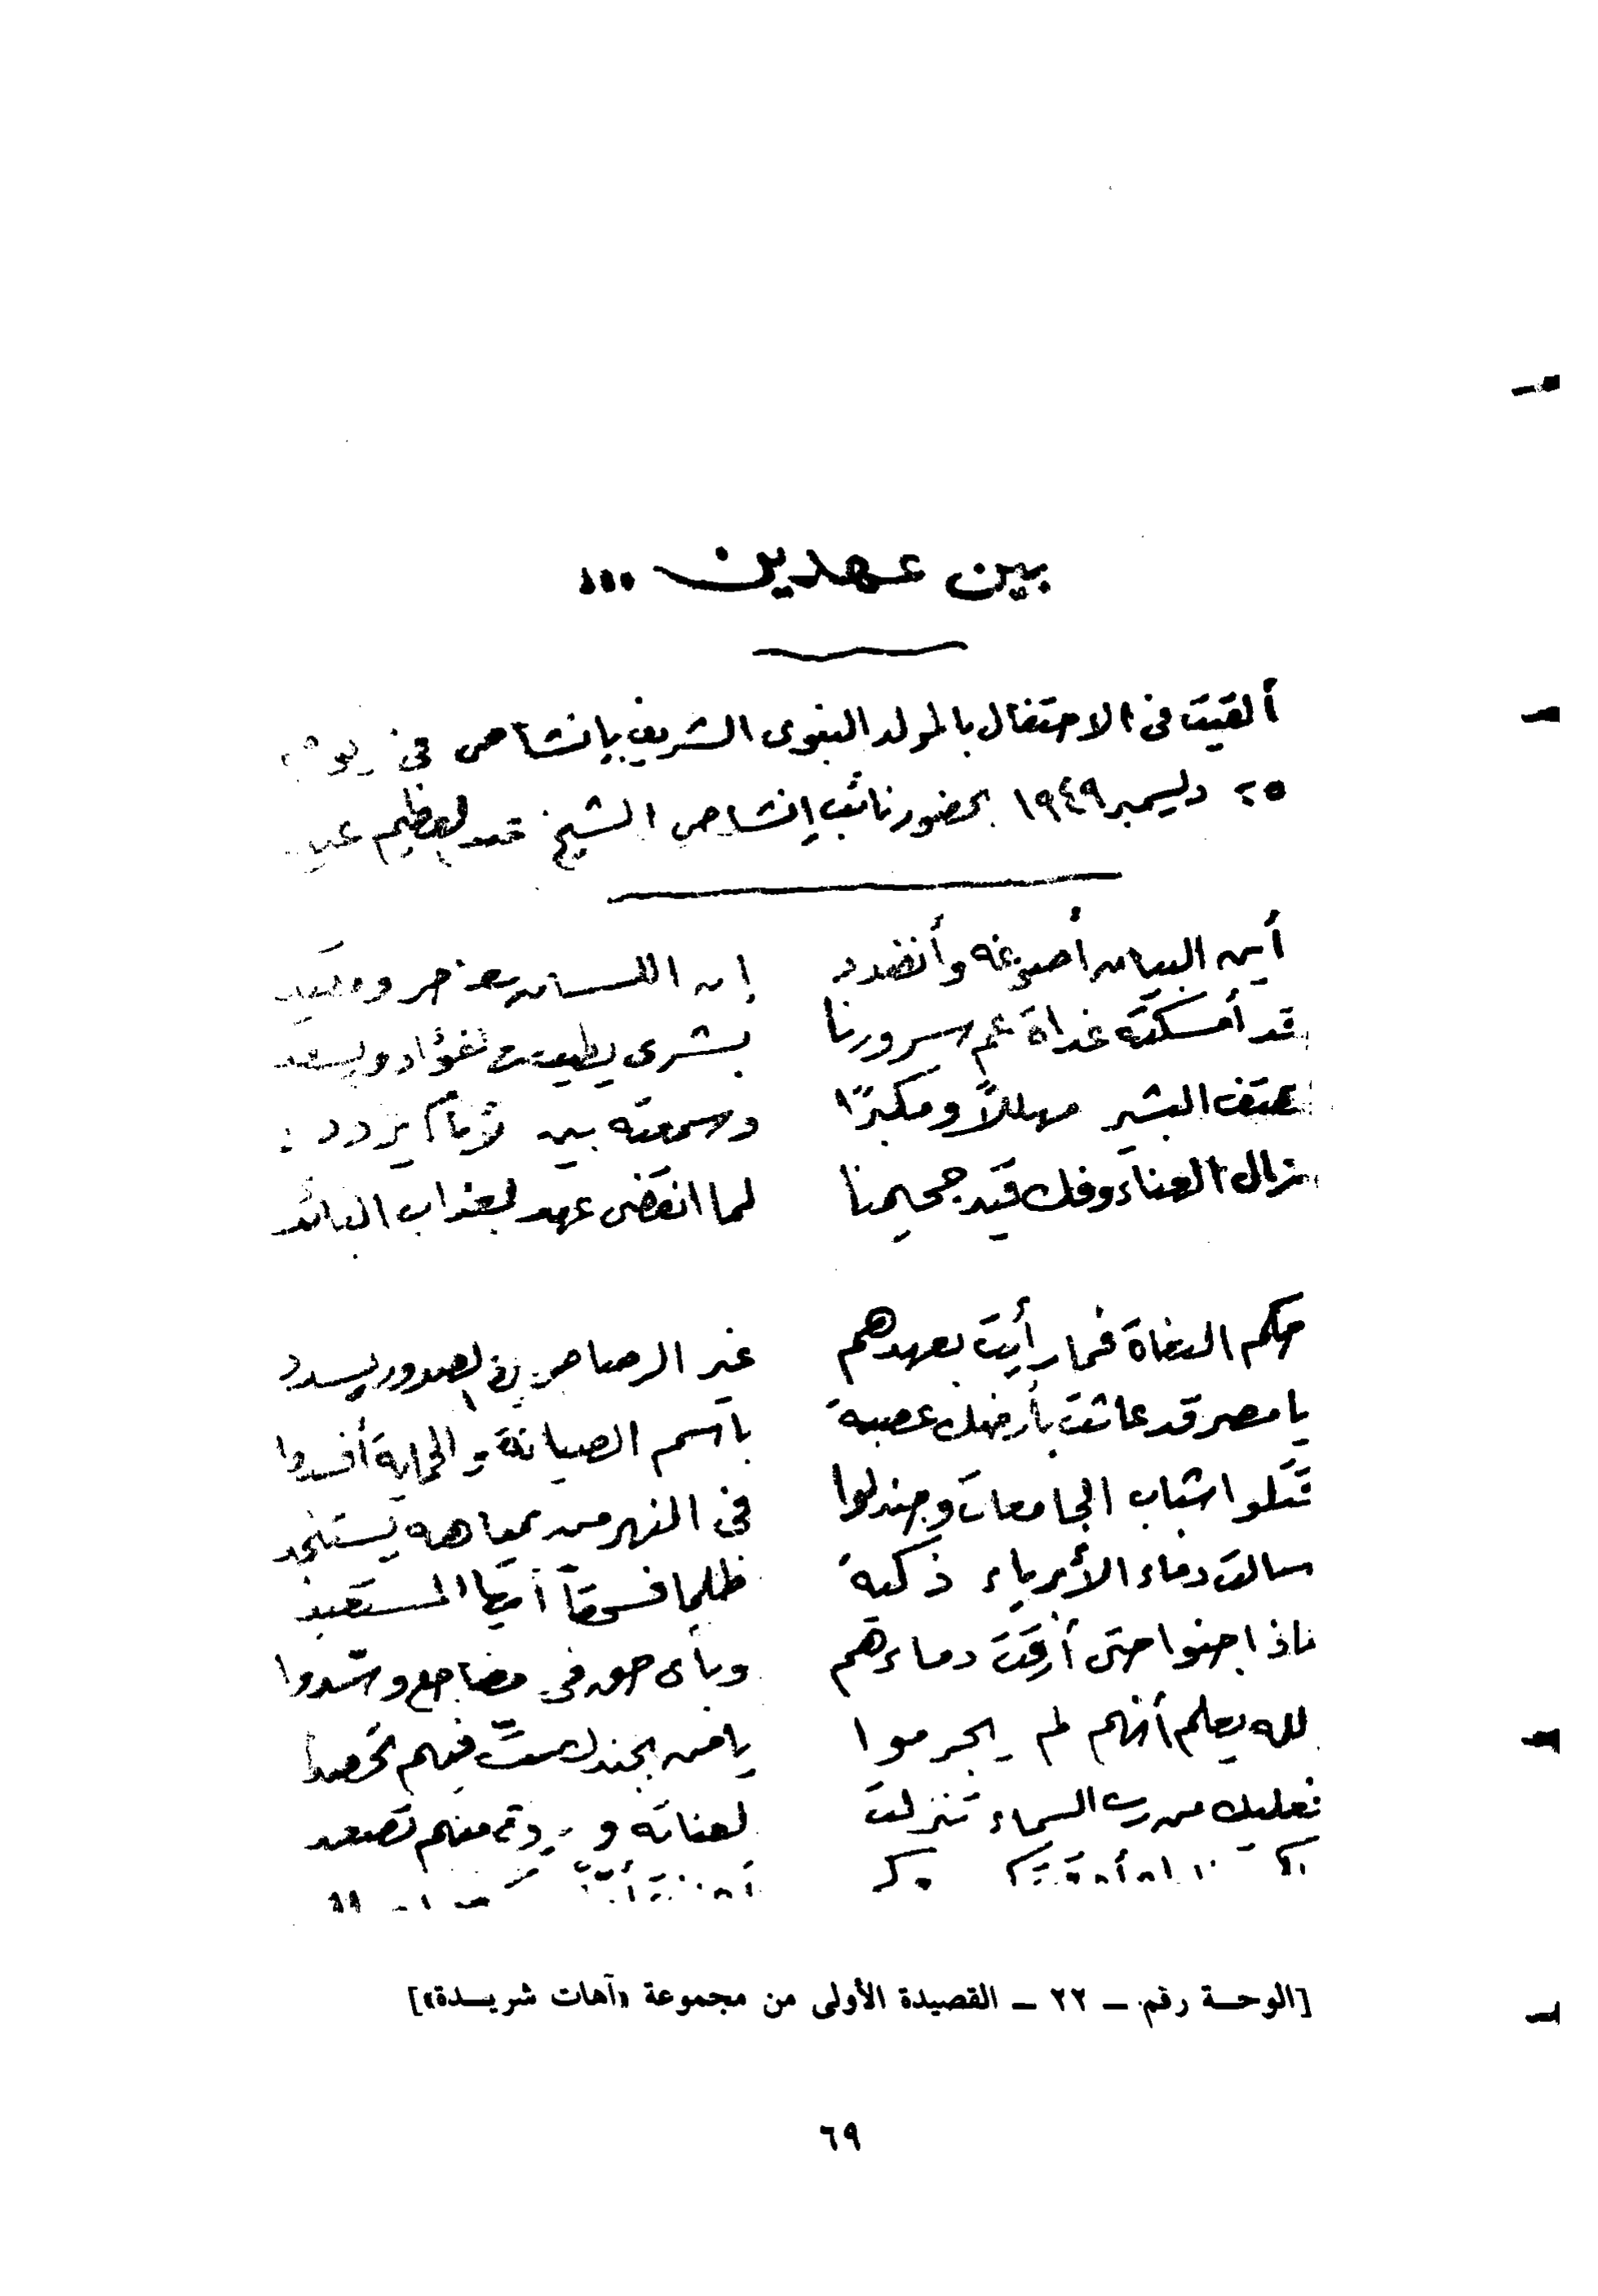 بين عهدين ...
ألقيت فى الاحتفال بالمولد النبوى الشريف بإنشاص فى يوم
٢٥ ديسمبر ١٩٤٩ بحضور نائب إنشاص الشيخ عبد العظيم عيد
أين البيان أصوغه وأنضد إن اللسان ومقيد
قد أمسكته غداة عم سرورنا بشرى يطيب الفؤاد ويسعد
هتف البشير مهللاً ومكبرًا وسمعته بين الأنام يردد :
زال العناء وفك قيد جحيمنا لما انقضى عهد العذاب البائد
حكم الطغاة فما رأيت بعهدهم غير الرصاص فى الصدور يسدد
يا مصر قد عاثت بأرضك عصبة باسم الصيانة والحماية أفسدوا
قتلوا شباب الجامعات وجندلوا فى النهر من بمياهه يستنجد
سالت دماء الأبرياء زكية ظلما فسحقاً أيها المستعبد
ماذا جنوا حتى أرقت دماءهم وبأى حق فى مضاجع وسدوا
الله يعلم أنهم لم يجرموا يا من بجندك فيهم تحصد
فعليك من رب السماء تنزلت لعناته و منهم تصعد
[الوحـة رقم ـ ٢٢ ـ القصيدة الأولى من مجموعة «آهات شريـدة»]
٦٩